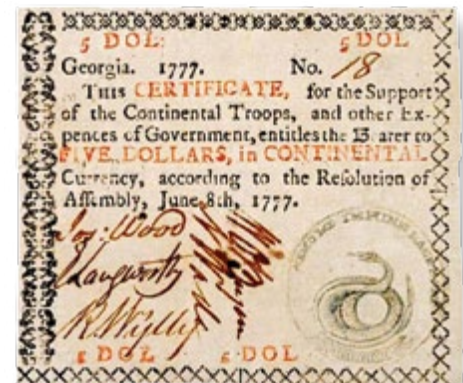 5 DOL: 5 DOL
Georgia. 1777. No. 18
This CERTIFICATE, for the Support
of the Continental Troops, and other Ex-
pences of Government, entitles the Bearer to
FIVE DOLLARS, in CONTINENTAL
Currency, according to the Resolution of
Assembly, June 8th, 1777.
Jos: Wood
E Langworthy
R. Wylly
5 DOL 5 DOL